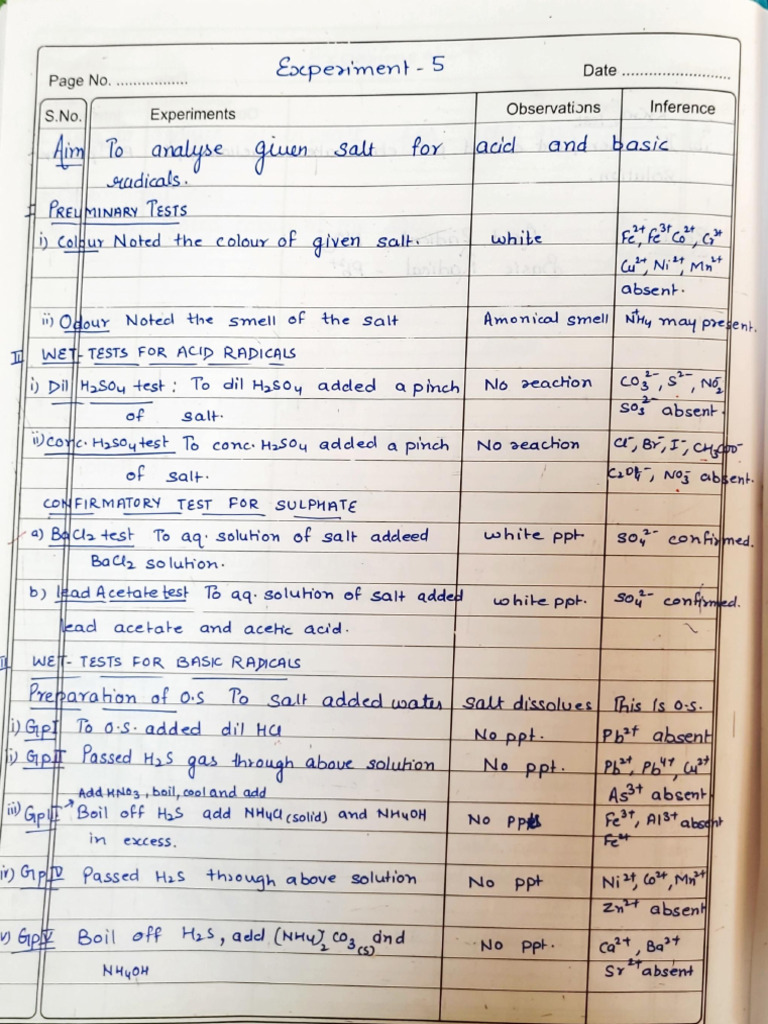 Experiment - 5
Page No. ................. Date ..........................
S.No. Experiments Observations Inference
Aim To analyse given salt for acid and basic
radicals.
I PRELIMINARY TESTS
i) Colour Noted the colour of given salt. white Fe²⁺, Fe³⁺ Co²⁺, Cr³⁺
Cu²⁺, Ni²⁺, Mn²⁺
absent.
ii) Odour Noted the smell of the salt Amonical smell NH₄⁺ may present.
II WET-TESTS FOR ACID RADICALS
i) Dil H₂SO₄ test : To dil H₂SO₄ added a pinch No reaction CO₃²⁻, S²⁻, NO₂⁻
of salt. SO₃²⁻ absent.
ii) Conc. H₂SO₄ test To conc. H₂SO₄ added a pinch No reaction Cl⁻, Br⁻, I⁻, CH₃COO⁻
of salt. C₂O₄²⁻, NO₃⁻ absent.
CONFIRMATORY TEST FOR SULPHATE
a) BaCl₂ test To aq. solution of salt addeed white ppt SO₄²⁻ confirmed.
BaCl₂ solution.
b) lead Acetate test To aq. solution of salt added white ppt. SO₄²⁻ confirmed.
lead acetate and acetic acid.
WET-TESTS FOR BASIC RADICALS
Preparation of O.S To salt added water salt dissolves This Is O.S.
i) Gp I To O.S. added dil HCl No ppt. Pb²⁺ absent
i) Gp II Passed H₂S gas through above solution No ppt. Pb²⁺, Pb⁴⁺, Cu²⁺
As³⁺ absent
Add HNO₃, boil, cool and add
iii) Gp III Boil off H₂S add NH₄Cl (solid) and NH₄OH No ppt Fe³⁺, Al³⁺ absent
in excess.
iv) Gp IV Passed H₂S through above solution No ppt Ni²⁺, Co²⁺, Mn²⁺
Zn²⁺ absent
v) Gp V Boil off H₂S, add (NH₄)₂CO₃(s) and No ppt. Ca²⁺, Ba²⁺
NH₄OH Sr²⁺ absent